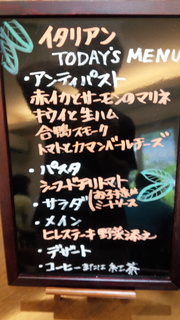 イタリアン
TODAY'S MENU
・アンティパスト
赤イカとサーモンのマリネ
キウイと生ハム
合鴨スモーク
トマトとカマンベールチーズ
・パスタ
シーフードトリトマト
お子様は
ミートソース
・サラダ
・メイン
ヒレステーキ 野菜添え
・デザート
・コーヒーまたは紅茶